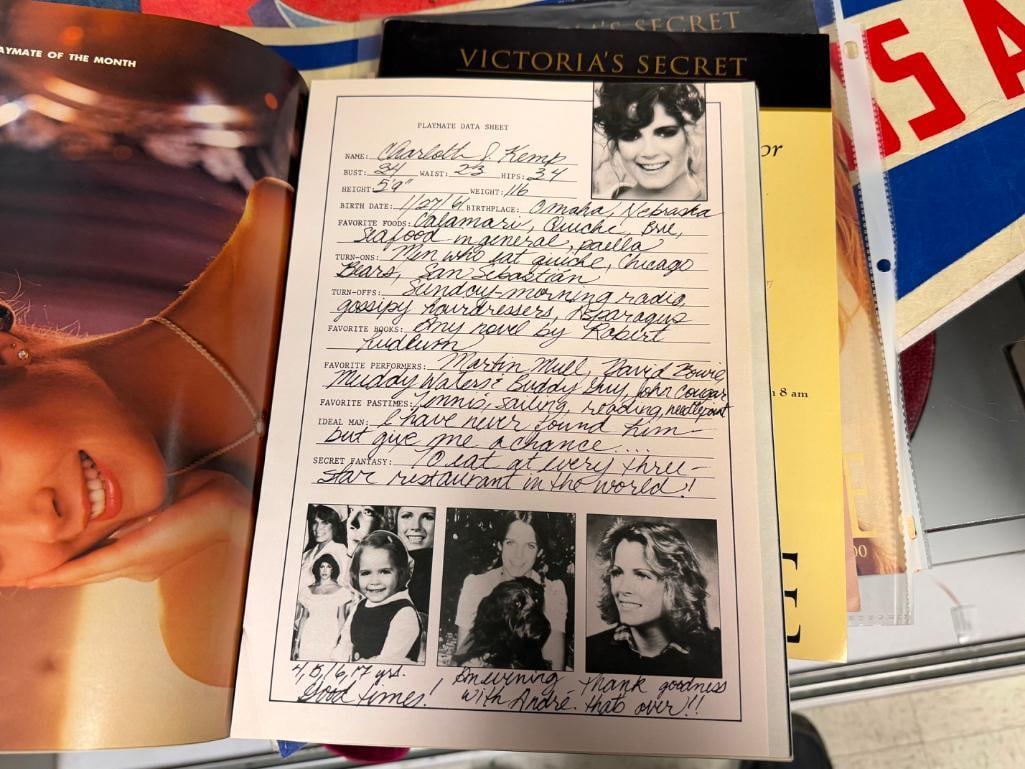 AYMATE OF THE MONTH
'S SECRET
VICTORIA'S SECRET
S A
or
n 8 am
00
PLAYMATE DATA SHEET
NAME: Charlotte J. Kemp
BUST: 34 WAIST: 23 HIPS: 34
HEIGHT: 5'9" WEIGHT: 116
BIRTH DATE: 1/27/61 BIRTHPLACE: Omaha, Nebraska
FAVORITE FOODS: Calamari, Quiche, Brie,
Seafood in general, paella
TURN-ONS: Men who eat quiche, Chicago
Bears, San Sebastián
TURN-OFFS: Sunday-morning radio,
gossipy hairdressers, Asparagus
FAVORITE BOOKS: Any novel by Robert
Ludlum
FAVORITE PERFORMERS: Martin Mull, David Bowie,
Muddy Waters & Buddy Guy, John Cougar
FAVORITE PASTIMES: Tennis, sailing, reading, needlepoint
IDEAL MAN: I have never found him—
but give me a chance....
SECRET FANTASY: To eat at every three-
star restaurant in the world!
4, 15, 16, 17 yrs.
Good times!
An evening
with André.
Thank goodness
that's over!!